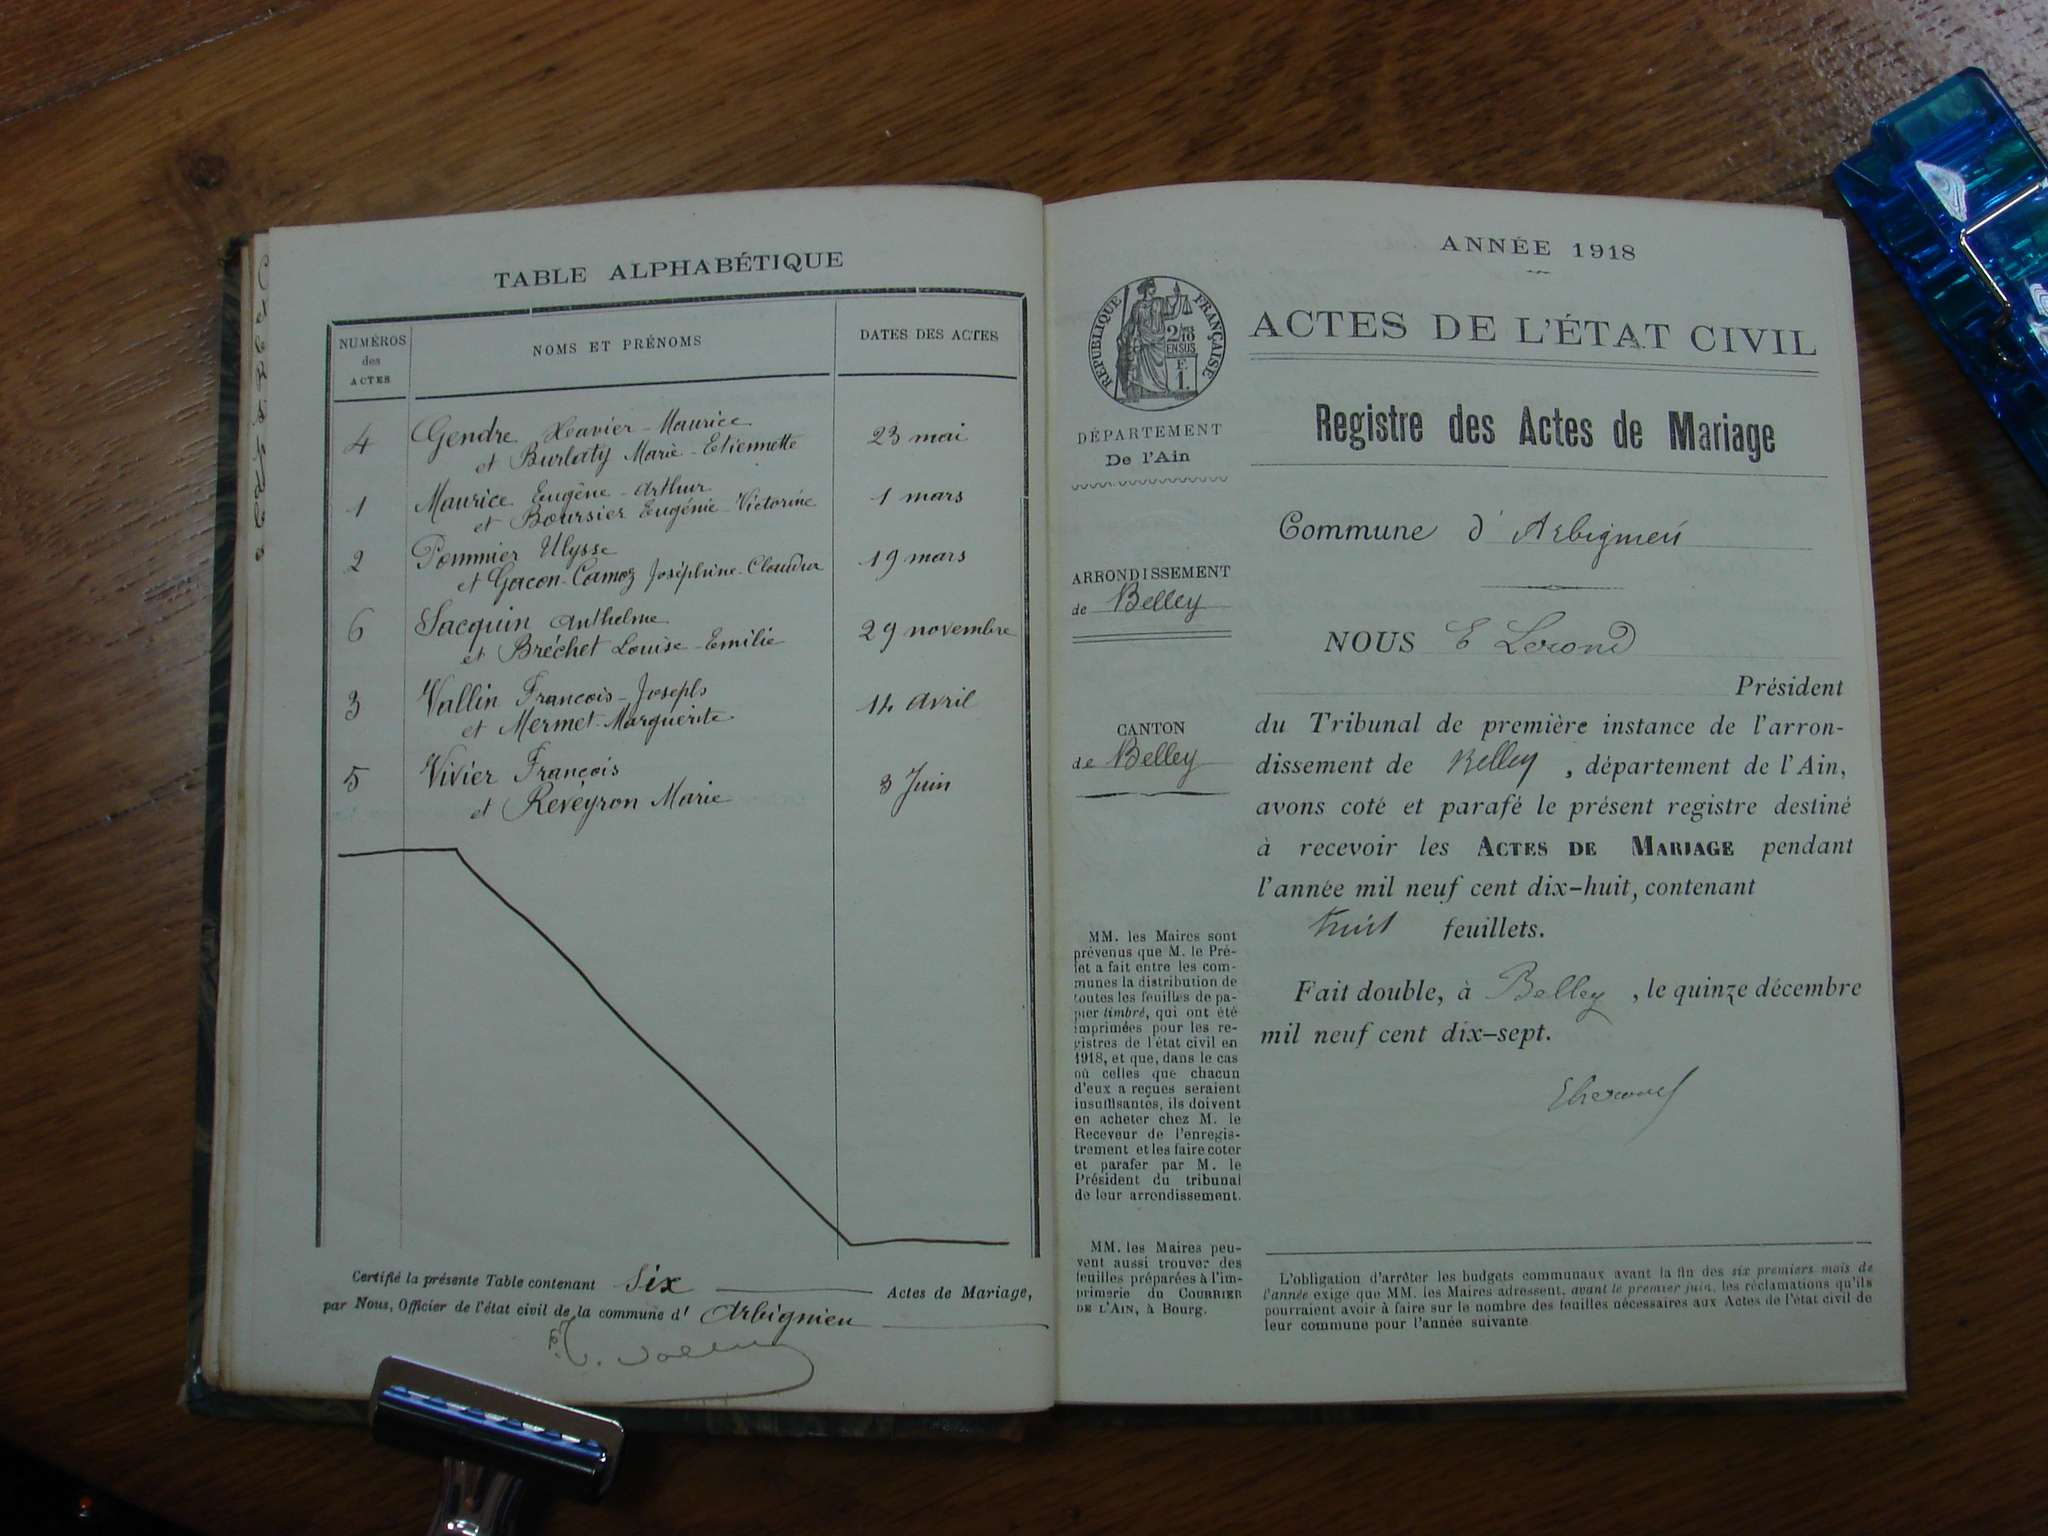 TABLE ALPHABÉTIQUE
NUMÉROS
des
ACTES
NOMS ET PRÉNOMS
DATES DES ACTES
4 Gendre Xavier-Maurice 23 mai
et Burlaty Marie-Etiennette
1 Maurice Eugène-Arthur 1 mars
et Boursier Eugénie-Victorine
2 Pommier Ulysse 19 mars
et Gacon-Camoz Joséphine-Claudia
6 Sacquin Anthelme 29 novembre
et Bréchet Louise-Emilie
3 Vallin François-Joseph 14 avril
et Mermet Marguerite
5 Vivier François 8 Juin
et Reveyron Marie
Certifié la présente Table contenant Six Actes de Mariage,
par Nous, Officier de l'état civil de la commune d' Arbignieu
ANNÉE 1918
RÉPUBLIQUE FRANÇAISE
2/10
EN SUS
F.
1.
ACTES DE L'ÉTAT CIVIL
Registre des Actes de Mariage
DÉPARTEMENT
De l'Ain
Commune d'Arbignieu
ARRONDISSEMENT
de Belley
NOUS E Lerond
Président
CANTON
de Belley
du Tribunal de première instance de l'arron-
dissement de Belley, département de l'Ain,
avons coté et parafé le présent registre destiné
à recevoir les ACTES DE MARIAGE pendant
l'année mil neuf cent dix-huit, contenant
huit feuillets.
Fait double, à Belley, le quinze décembre
mil neuf cent dix-sept.
MM. les Maires sont
prévenus que M. le Pré-
fet a fait entre les com-
munes la distribution de
toutes les feuilles de pa-
pier timbré, qui ont été
imprimées pour les re-
gistres de l'état civil en
1918, et que, dans le cas
où celles que chacun
d'eux a reçues seraient
insuffisantes, ils doivent
en acheter chez M. le
Receveur de l'enregis-
trement et les faire coter
et parafer par M. le
Président du tribunal
de leur arrondissement.
MM. les Maires peu-
vent aussi trouver des
feuilles préparées à l'im-
primerie du COURRIER
DE L'AIN, à Bourg.
L'obligation d'arrêter les budgets communaux avant la fin des six premiers mois de
l'année exige que MM. les Maires adressent, avant le premier juin, les réclamations qu'ils
pourraient avoir à faire sur le nombre des feuilles nécessaires aux Actes de l'état civil de
leur commune pour l'année suivante